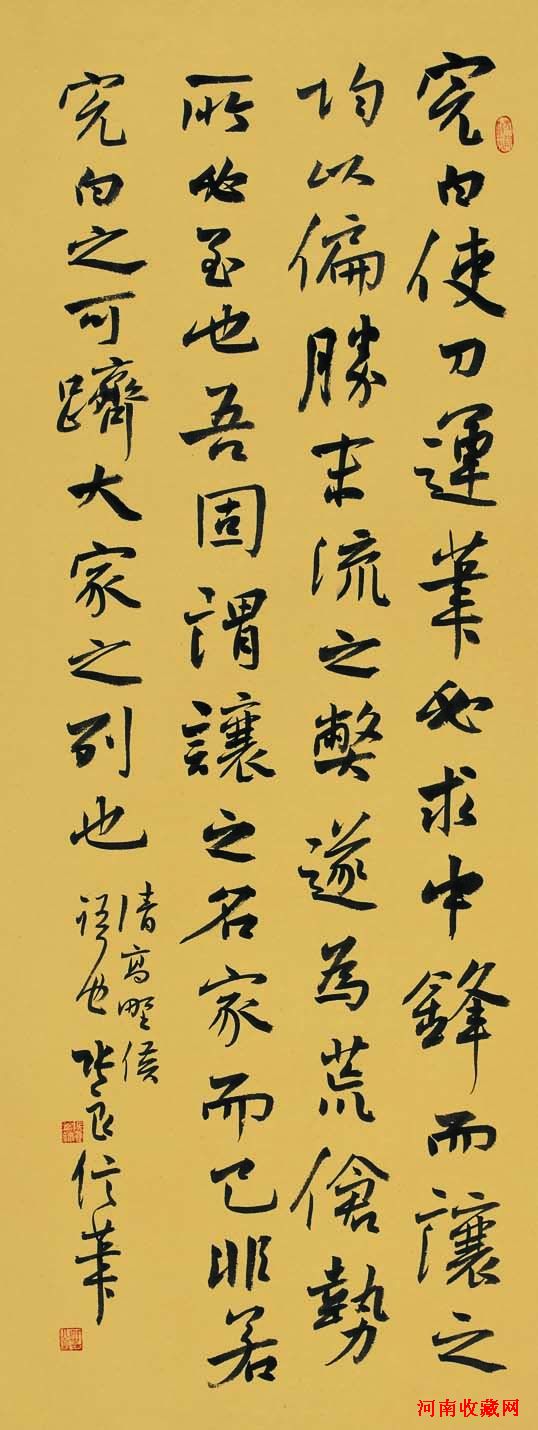 完白使刀運筆必求中鋒而讓之
均以偏勝末流之弊遂為荒傖勢
所必至也吾固謂讓之名家而已非若
完白之可躋大家之列也
清高野侯
語也 張良信筆
河南收藏网